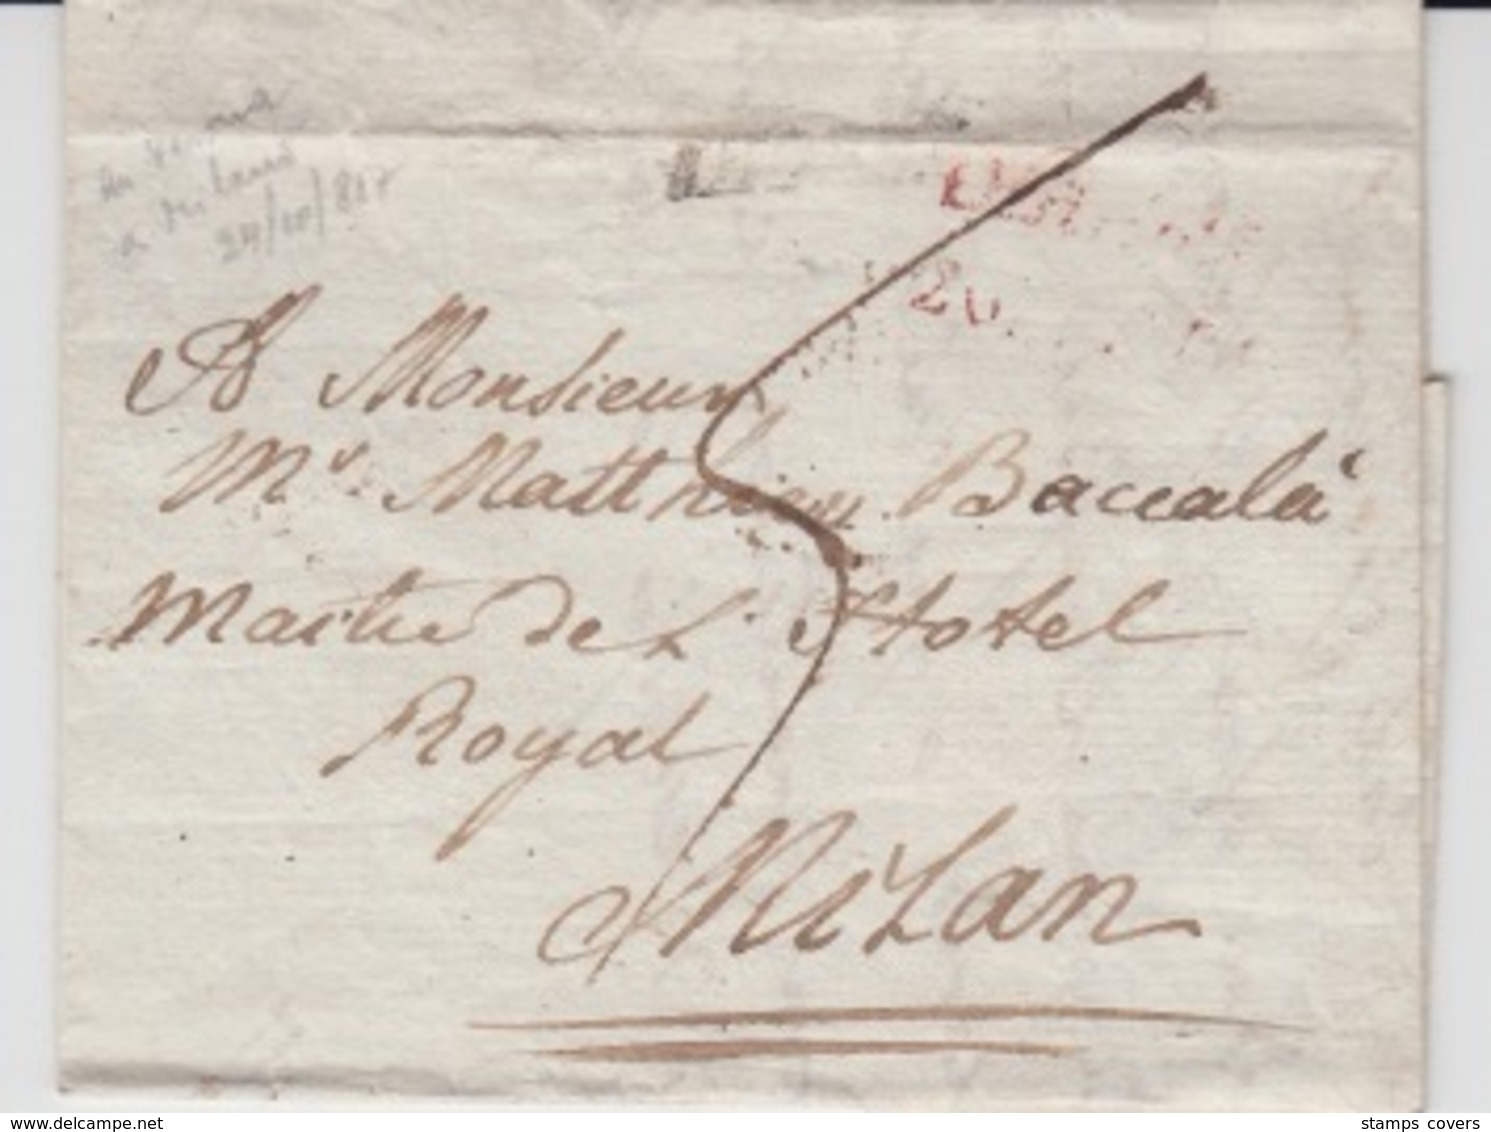 24/10/817
20
A Monsieur
Mr. Matthieu Baccalà
Maitre de L'Hotel
Royal
Milan
www.delcampe.net
stamps covers